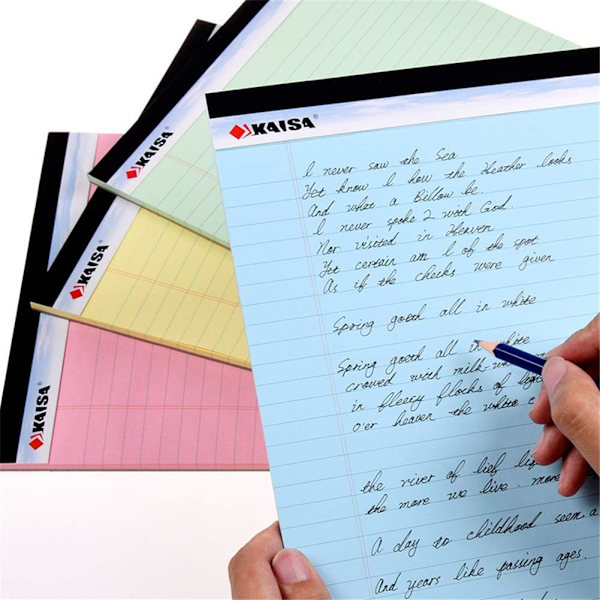 KAISA®
KAISA®
KAISA®
KAISA®
I never saw the Sea
Yet know I how the Heather looks
And what a Billow be
I never spoke 2 with God
Nor visited in Heaven
Yet certain am I of the spot
As if the checks were given
Spring goeth all in white
Spring goeth all in white
crowed with milk-w
in fleecy flocks of lig
o'er heaven the white c
the river of lief li
the more we live. more
A day to childhood seem a
And years like passing ages.